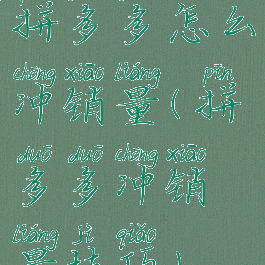 拼多多怎么
chōng xiāo liáng pīn
冲销量(拼
duō duō chōng xiāo
多多冲销
liáng jì qiǎo
量技巧)